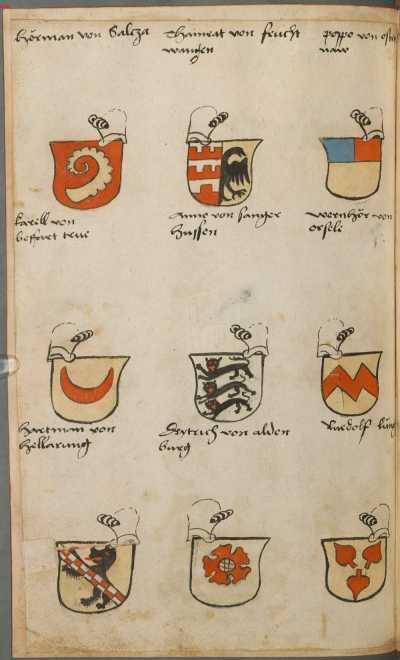 Herman von Salcza
Chünrat von feucht
wangen
poppo von oster
naw
Karell von
beffart true
Anno von sanger
hussen
Wernhör von
orsele
Hartman von
hellarung
Dytrich von alden
burg
Ruedolf küng